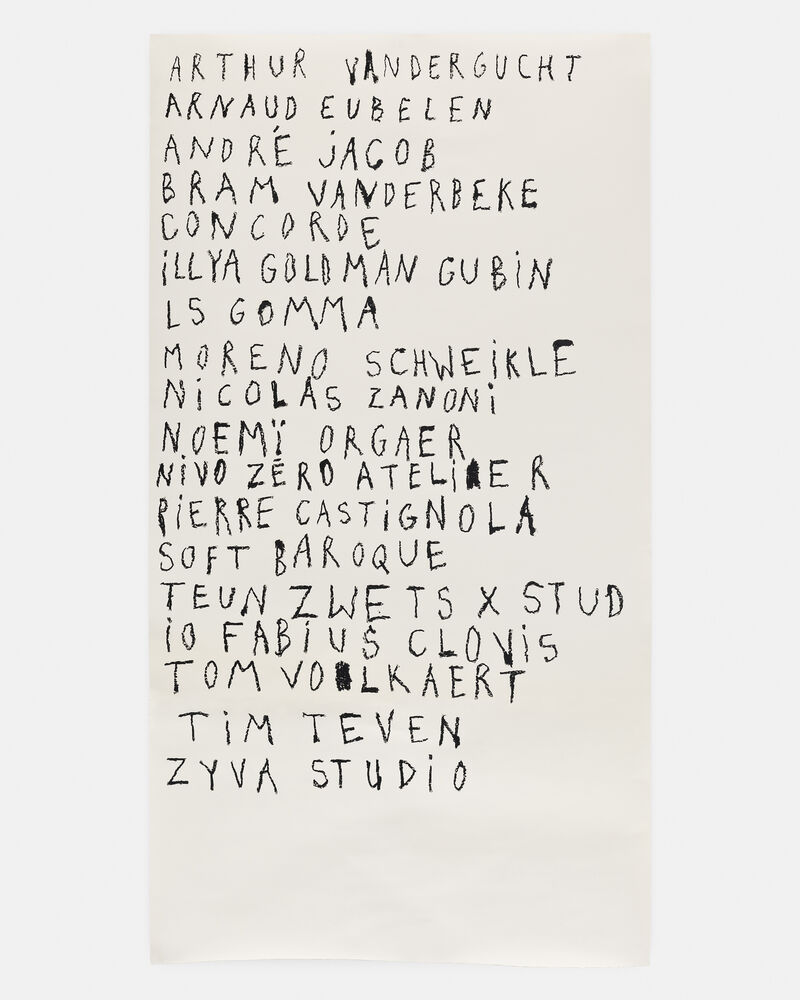 ARTHUR VANDERGUCHT
ARNAUD EUBELEN
ANDRÉ JACOB
BRAM VANDERBEKE
CONCORDE
iLLYA GOLDMAN GUBiN
LS GOMMA
MORENO SCHWEiKLE
NiCOLAS ZANONi
NOEMÏ ORGAER
NiVO ZERO ATELiER
PiERRE CASTiGNOLA
SOFT BAROQUE
TEUN ZWETS X STUD
iO FABiUS CLOViS
TOM VOLKAERT
TiM TEVEN
ZYVA STUDiO